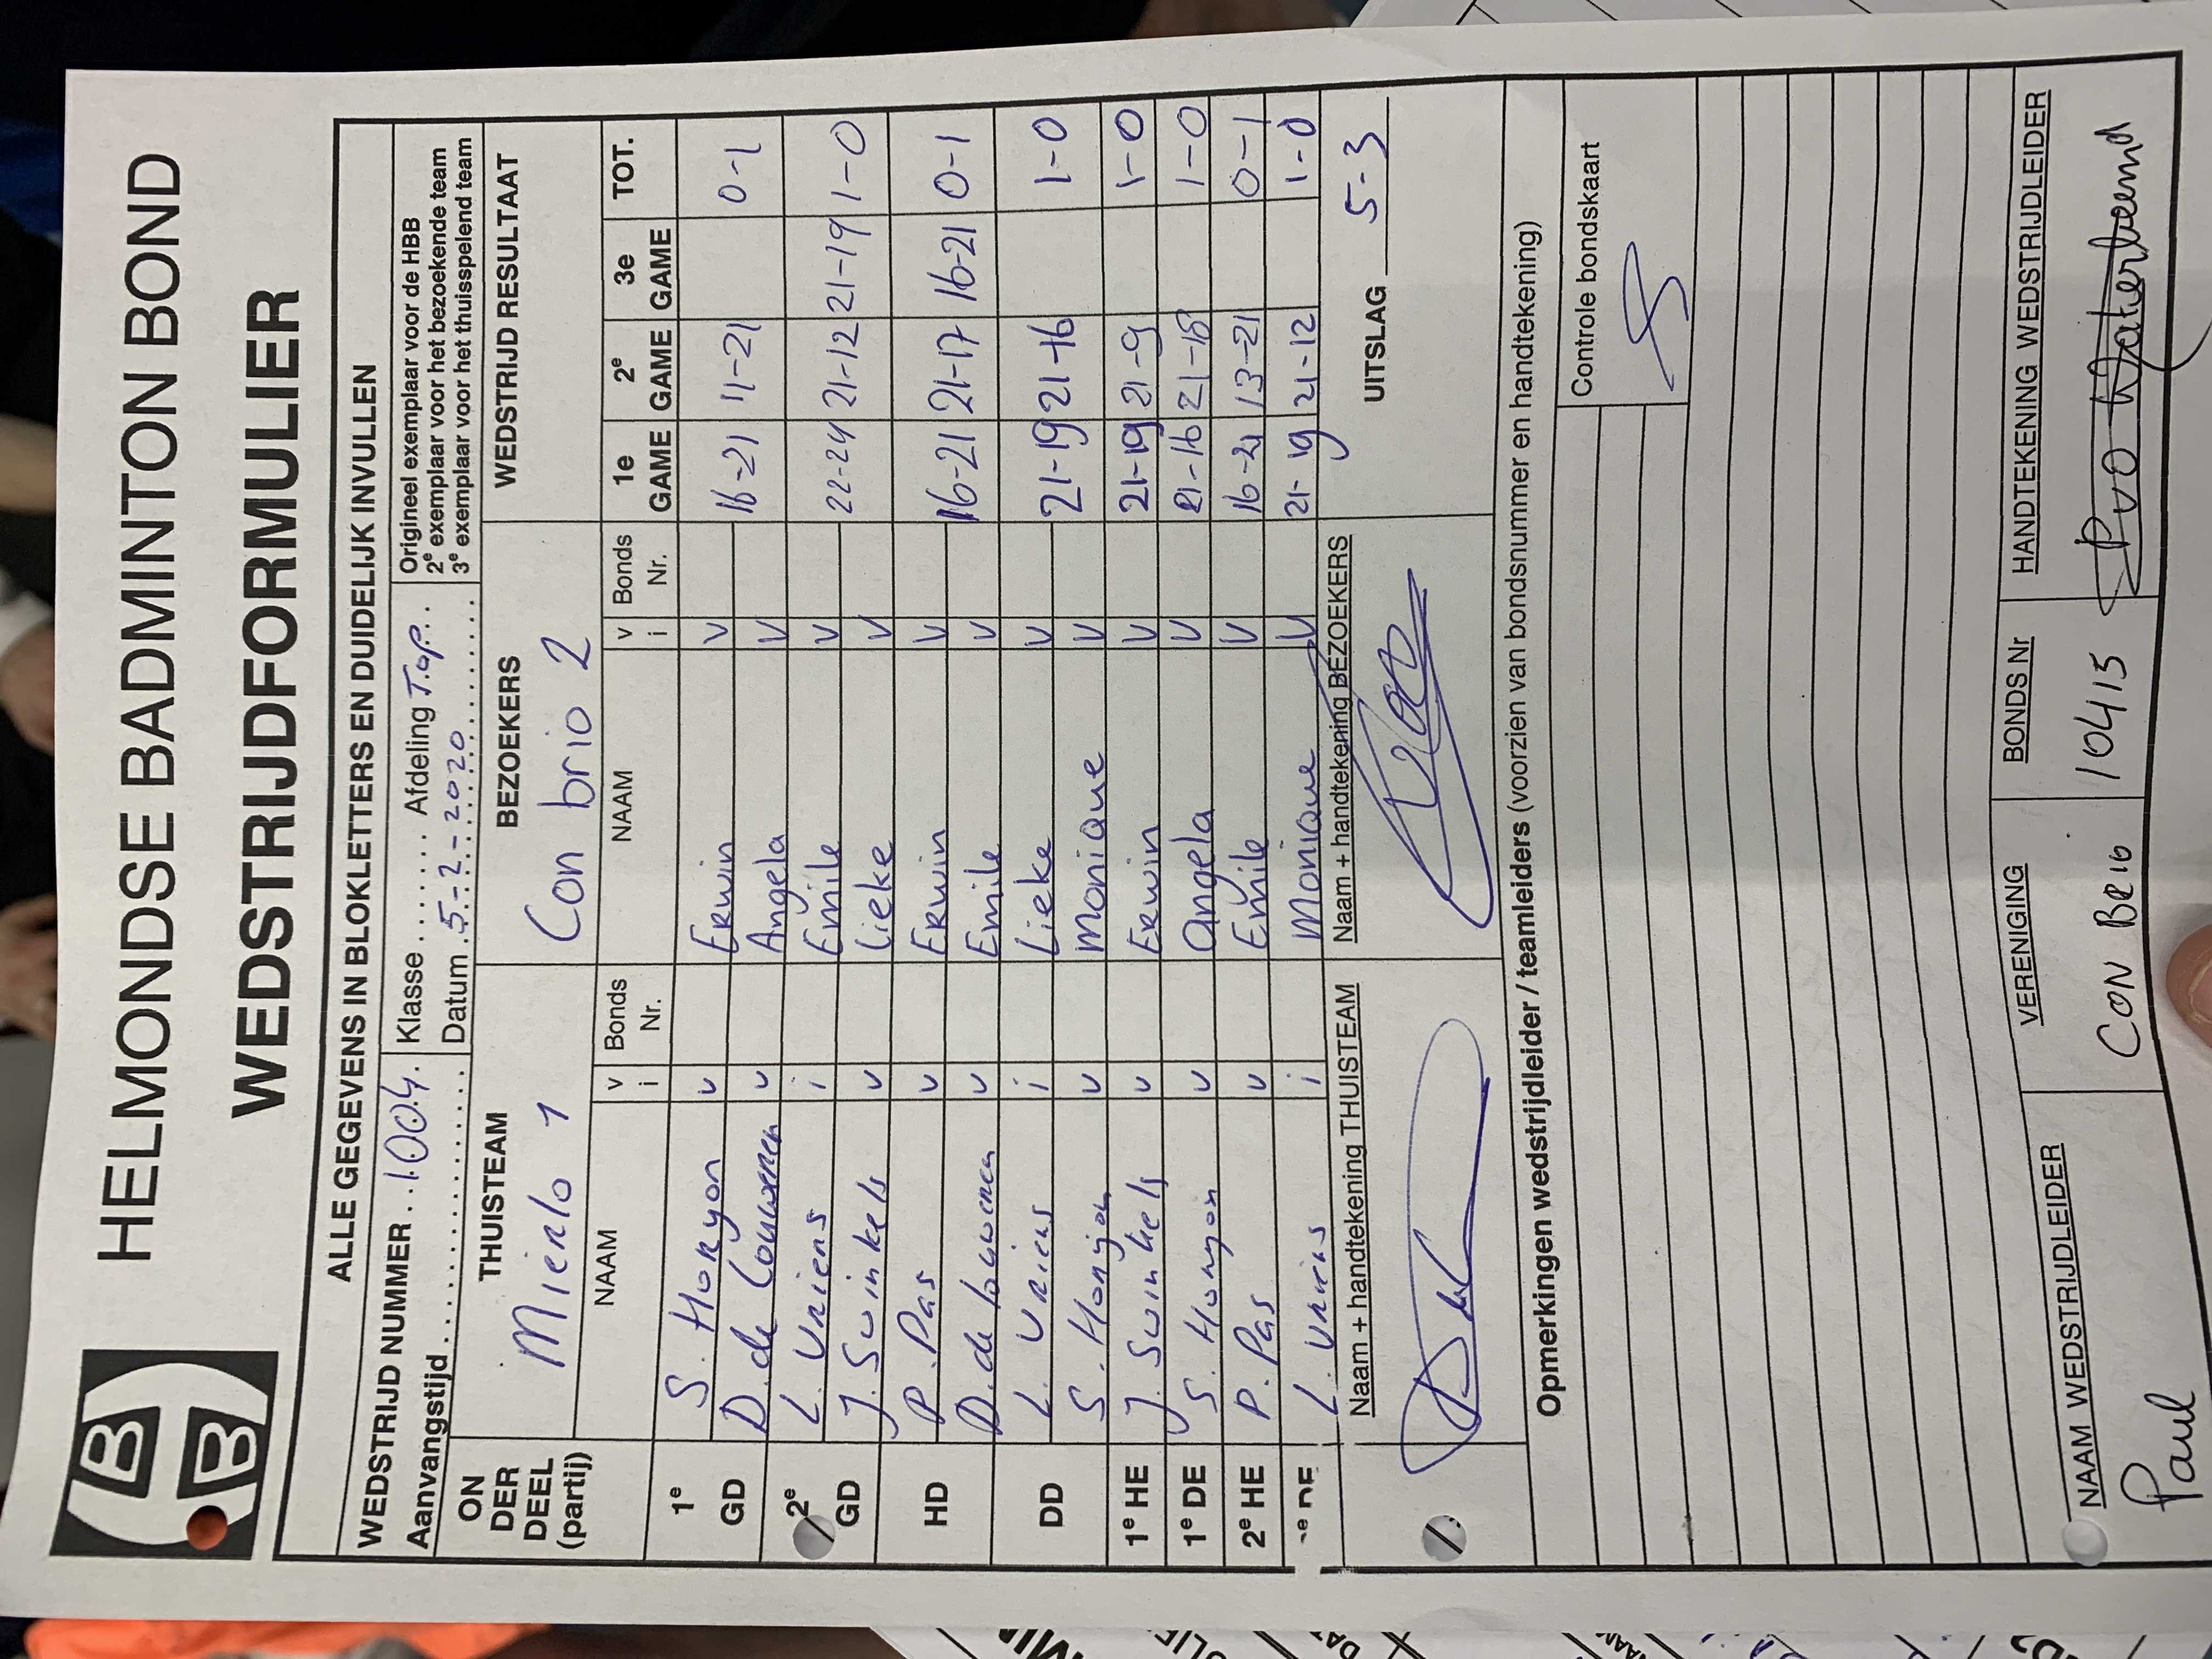 HELMONDSE BADMINTON BOND
WEDSTRIJDFORMULIER
ALLE GEGEVENS IN BLOKLETTERS EN DUIDELIJK INVULLEN
WEDSTRIJD NUMMER ..1004. Klasse ...... Afdeling Top..
Aanvangstijd .................. Datum .5.-.2.-.2020..........
Origineel exemplaar voor de HBB
2e exemplaar voor het bezoekende team
3e exemplaar voor het thuisspelend team
ON DER DEEL (partij) THUISTEAM BEZOEKERS WEDSTRIJD RESULTAAT
Mierlo 1 Con brio 2
NAAM v i Bonds Nr. NAAM v i Bonds Nr. 1e GAME 2e GAME 3e GAME TOT.
1e GD S. Honyon v Erwin v 16-21 11-21 0-1
D. de Louweren v Angela v
2e GD L. Vriens i Emile v 22-24 21-12 21-19 1-0
J. Swinkels v Lieke v
HD P. Pas v Erwin v 16-21 21-17 16-21 0-1
D. de Louweren v Emile v
DD L. Vriens i Lieke v 21-19 21-16 1-0
S. Honyon v Monique v
1e HE J. Swinkels v Erwin v 21-19 21-9 1-0
1e DE S. Honyon v Angela v 21-16 21-18 1-0
2e HE P. Pas v Emile v 16-21 13-21 0-1
DE L. Vriens i Monique v 21-19 21-12 1-0
Naam + handtekening THUISTEAM Naam + handtekening BEZOEKERS UITSLAG 5-3
Opmerkingen wedstrijdleider / teamleiders (voorzien van bondsnummer en handtekening)
Controle bondskaart
NAAM WEDSTRIJDLEIDER VERENIGING BONDS Nr HANDTEKENING WEDSTRIJDLEIDER
Paul CON BRIO 10415